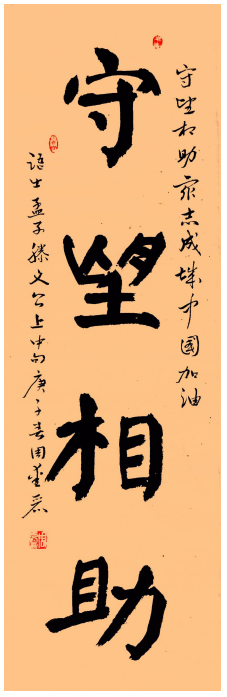 守望相助众志成城中国加油
守望相助
语出孟子滕文公上中句庚子春周